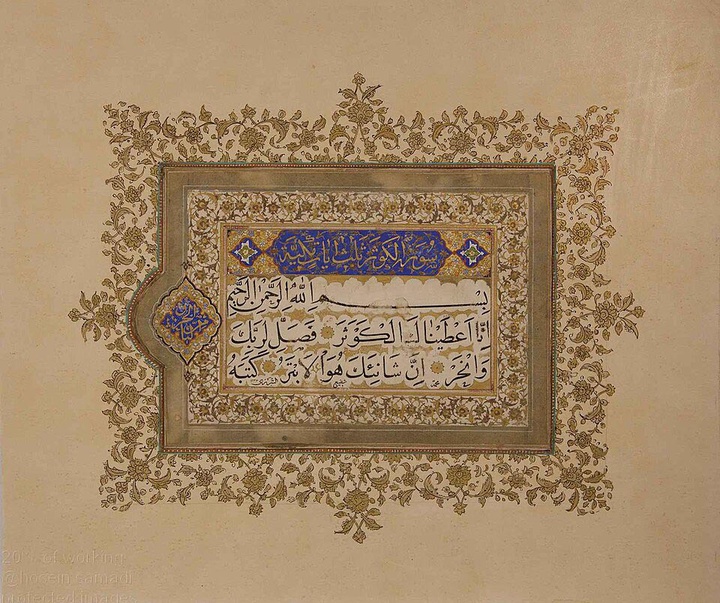 سورة الكوثر ثلث آيات مكية
بِسْمِ اللّٰهِ الرَّحْمٰنِ الرَّحِيمِ
اِنَّا اَعْطَيْنَاكَ الْكَوْثَرَ فَصَلِّ لِرَبِّكَ
وَانْحَرْ اِنَّ شَانِئَكَ هُوَ الْاَبْتَرُ كَتَبَهُ
@hosein samadi
protected images